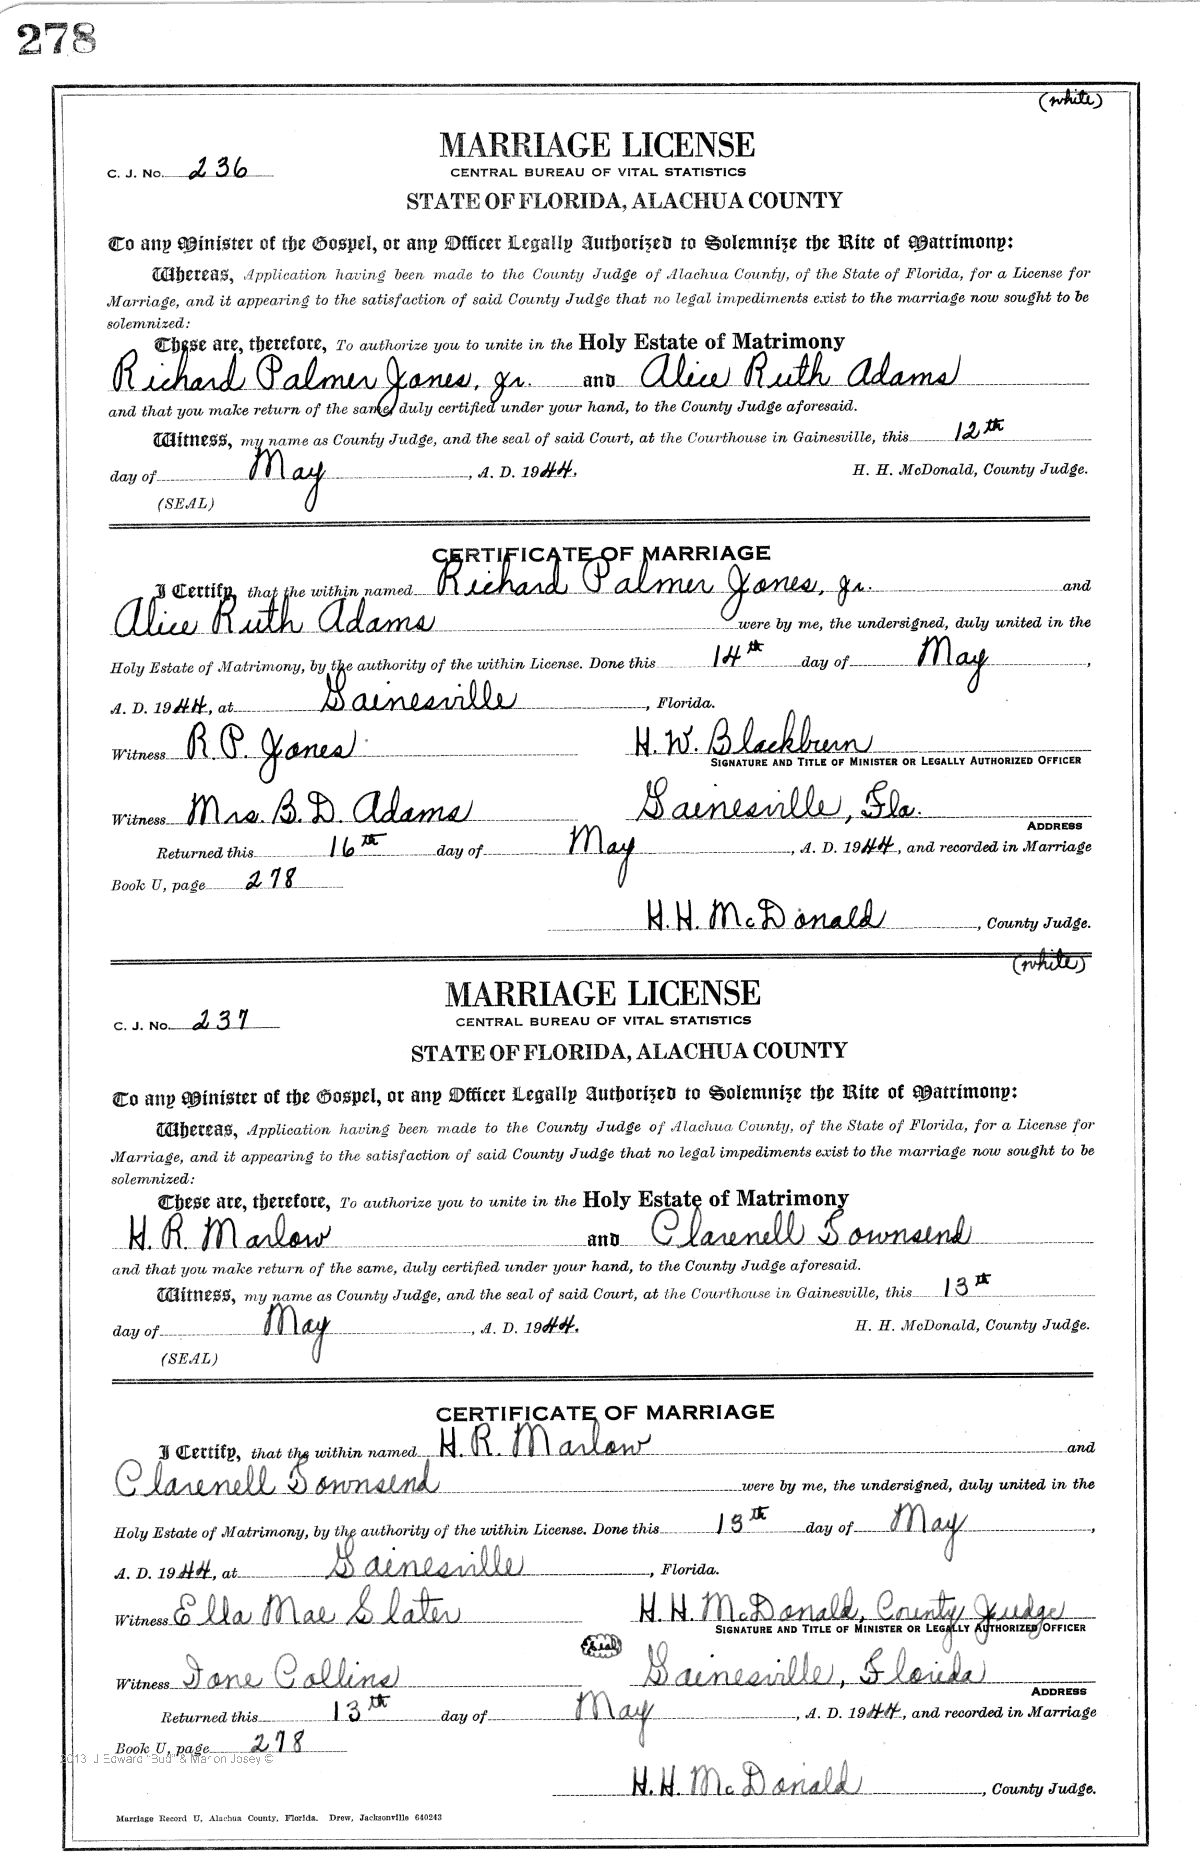 278
(white)
MARRIAGE LICENSE
C. J. No. 236
CENTRAL BUREAU OF VITAL STATISTICS
STATE OF FLORIDA, ALACHUA COUNTY
To any Minister of the Gospel, or any Officer Legally Authorized to Solemnize the Rite of Matrimony:
Whereas, Application having been made to the County Judge of Alachua County, of the State of Florida, for a License for
Marriage, and it appearing to the satisfaction of said County Judge that no legal impediments exist to the marriage now sought to be
solemnized:
These are, therefore, To authorize you to unite in the Holy Estate of Matrimony
Richard Palmer Jones, Jr. and Alice Ruth Adams
and that you make return of the same, duly certified under your hand, to the County Judge aforesaid.
Witness, my name as County Judge, and the seal of said Court, at the Courthouse in Gainesville, this 12th
day of May, A. D. 1944. H. H. McDonald, County Judge.
(SEAL)
CERTIFICATE OF MARRIAGE
I Certify, that the within named Richard Palmer Jones, Jr. and
Alice Ruth Adams were by me, the undersigned, duly united in the
Holy Estate of Matrimony, by the authority of the within License. Done this 14th day of May,
A. D. 1944, at Gainesville, Florida.
Witness R. P. Jones H. W. Blackburn
SIGNATURE AND TITLE OF MINISTER OR LEGALLY AUTHORIZED OFFICER
Witness Mrs. B. D. Adams Gainesville, Fla.
ADDRESS
Returned this 16th day of May, A. D. 1944, and recorded in Marriage
Book U, page 278
H. H. McDonald, County Judge.
(white)
MARRIAGE LICENSE
C. J. No. 237
CENTRAL BUREAU OF VITAL STATISTICS
STATE OF FLORIDA, ALACHUA COUNTY
To any Minister of the Gospel, or any Officer Legally Authorized to Solemnize the Rite of Matrimony:
Whereas, Application having been made to the County Judge of Alachua County, of the State of Florida, for a License for
Marriage, and it appearing to the satisfaction of said County Judge that no legal impediments exist to the marriage now sought to be
solemnized:
These are, therefore, To authorize you to unite in the Holy Estate of Matrimony
H. R. Marlow and Clarenell Townsend
and that you make return of the same, duly certified under your hand, to the County Judge aforesaid.
Witness, my name as County Judge, and the seal of said Court, at the Courthouse in Gainesville, this 13th
day of May, A. D. 1944. H. H. McDonald, County Judge.
(SEAL)
CERTIFICATE OF MARRIAGE
I Certify, that the within named H. R. Marlow and
Clarenell Townsend were by me, the undersigned, duly united in the
Holy Estate of Matrimony, by the authority of the within License. Done this 13th day of May,
A. D. 1944, at Gainesville, Florida.
Witness Ella Mae Slater H. H. McDonald, County Judge
SIGNATURE AND TITLE OF MINISTER OR LEGALLY AUTHORIZED OFFICER
Seal
Witness Ione Collins Gainesville, Florida
ADDRESS
Returned this 13th day of May, A. D. 1944, and recorded in Marriage
Book U, page 278
2013 J Edward "Bud" & Marion Josey ©
H. H. McDonald, County Judge.
Marriage Record U, Alachua County, Florida. Drew, Jacksonville 640243